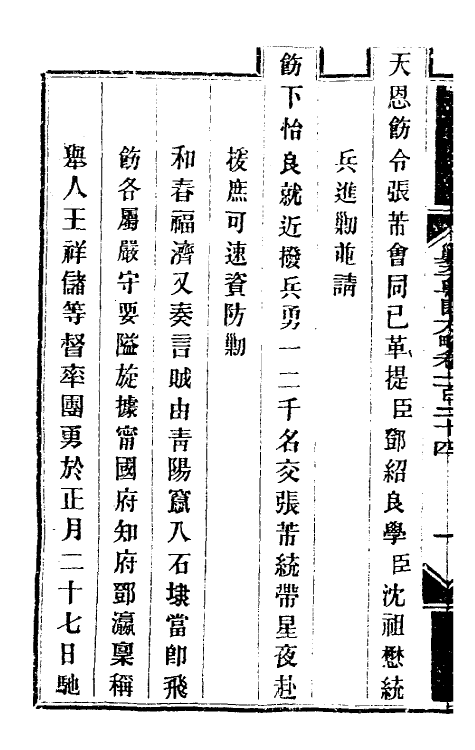 天恩飭令張芾會同已革提臣鄧紹良學臣沈祖懋統
兵進勦並請
飭下怡良就近撥兵勇一二千名交張芾統帶星夜赴
援庶可速資防勦
和春福濟又奏言賊由青陽竄入石埭當卽飛
飭各屬嚴守要隘旋據甯國府知府鄧瀛稟稱
舉人王祥儲等督率團勇於正月二十七日馳